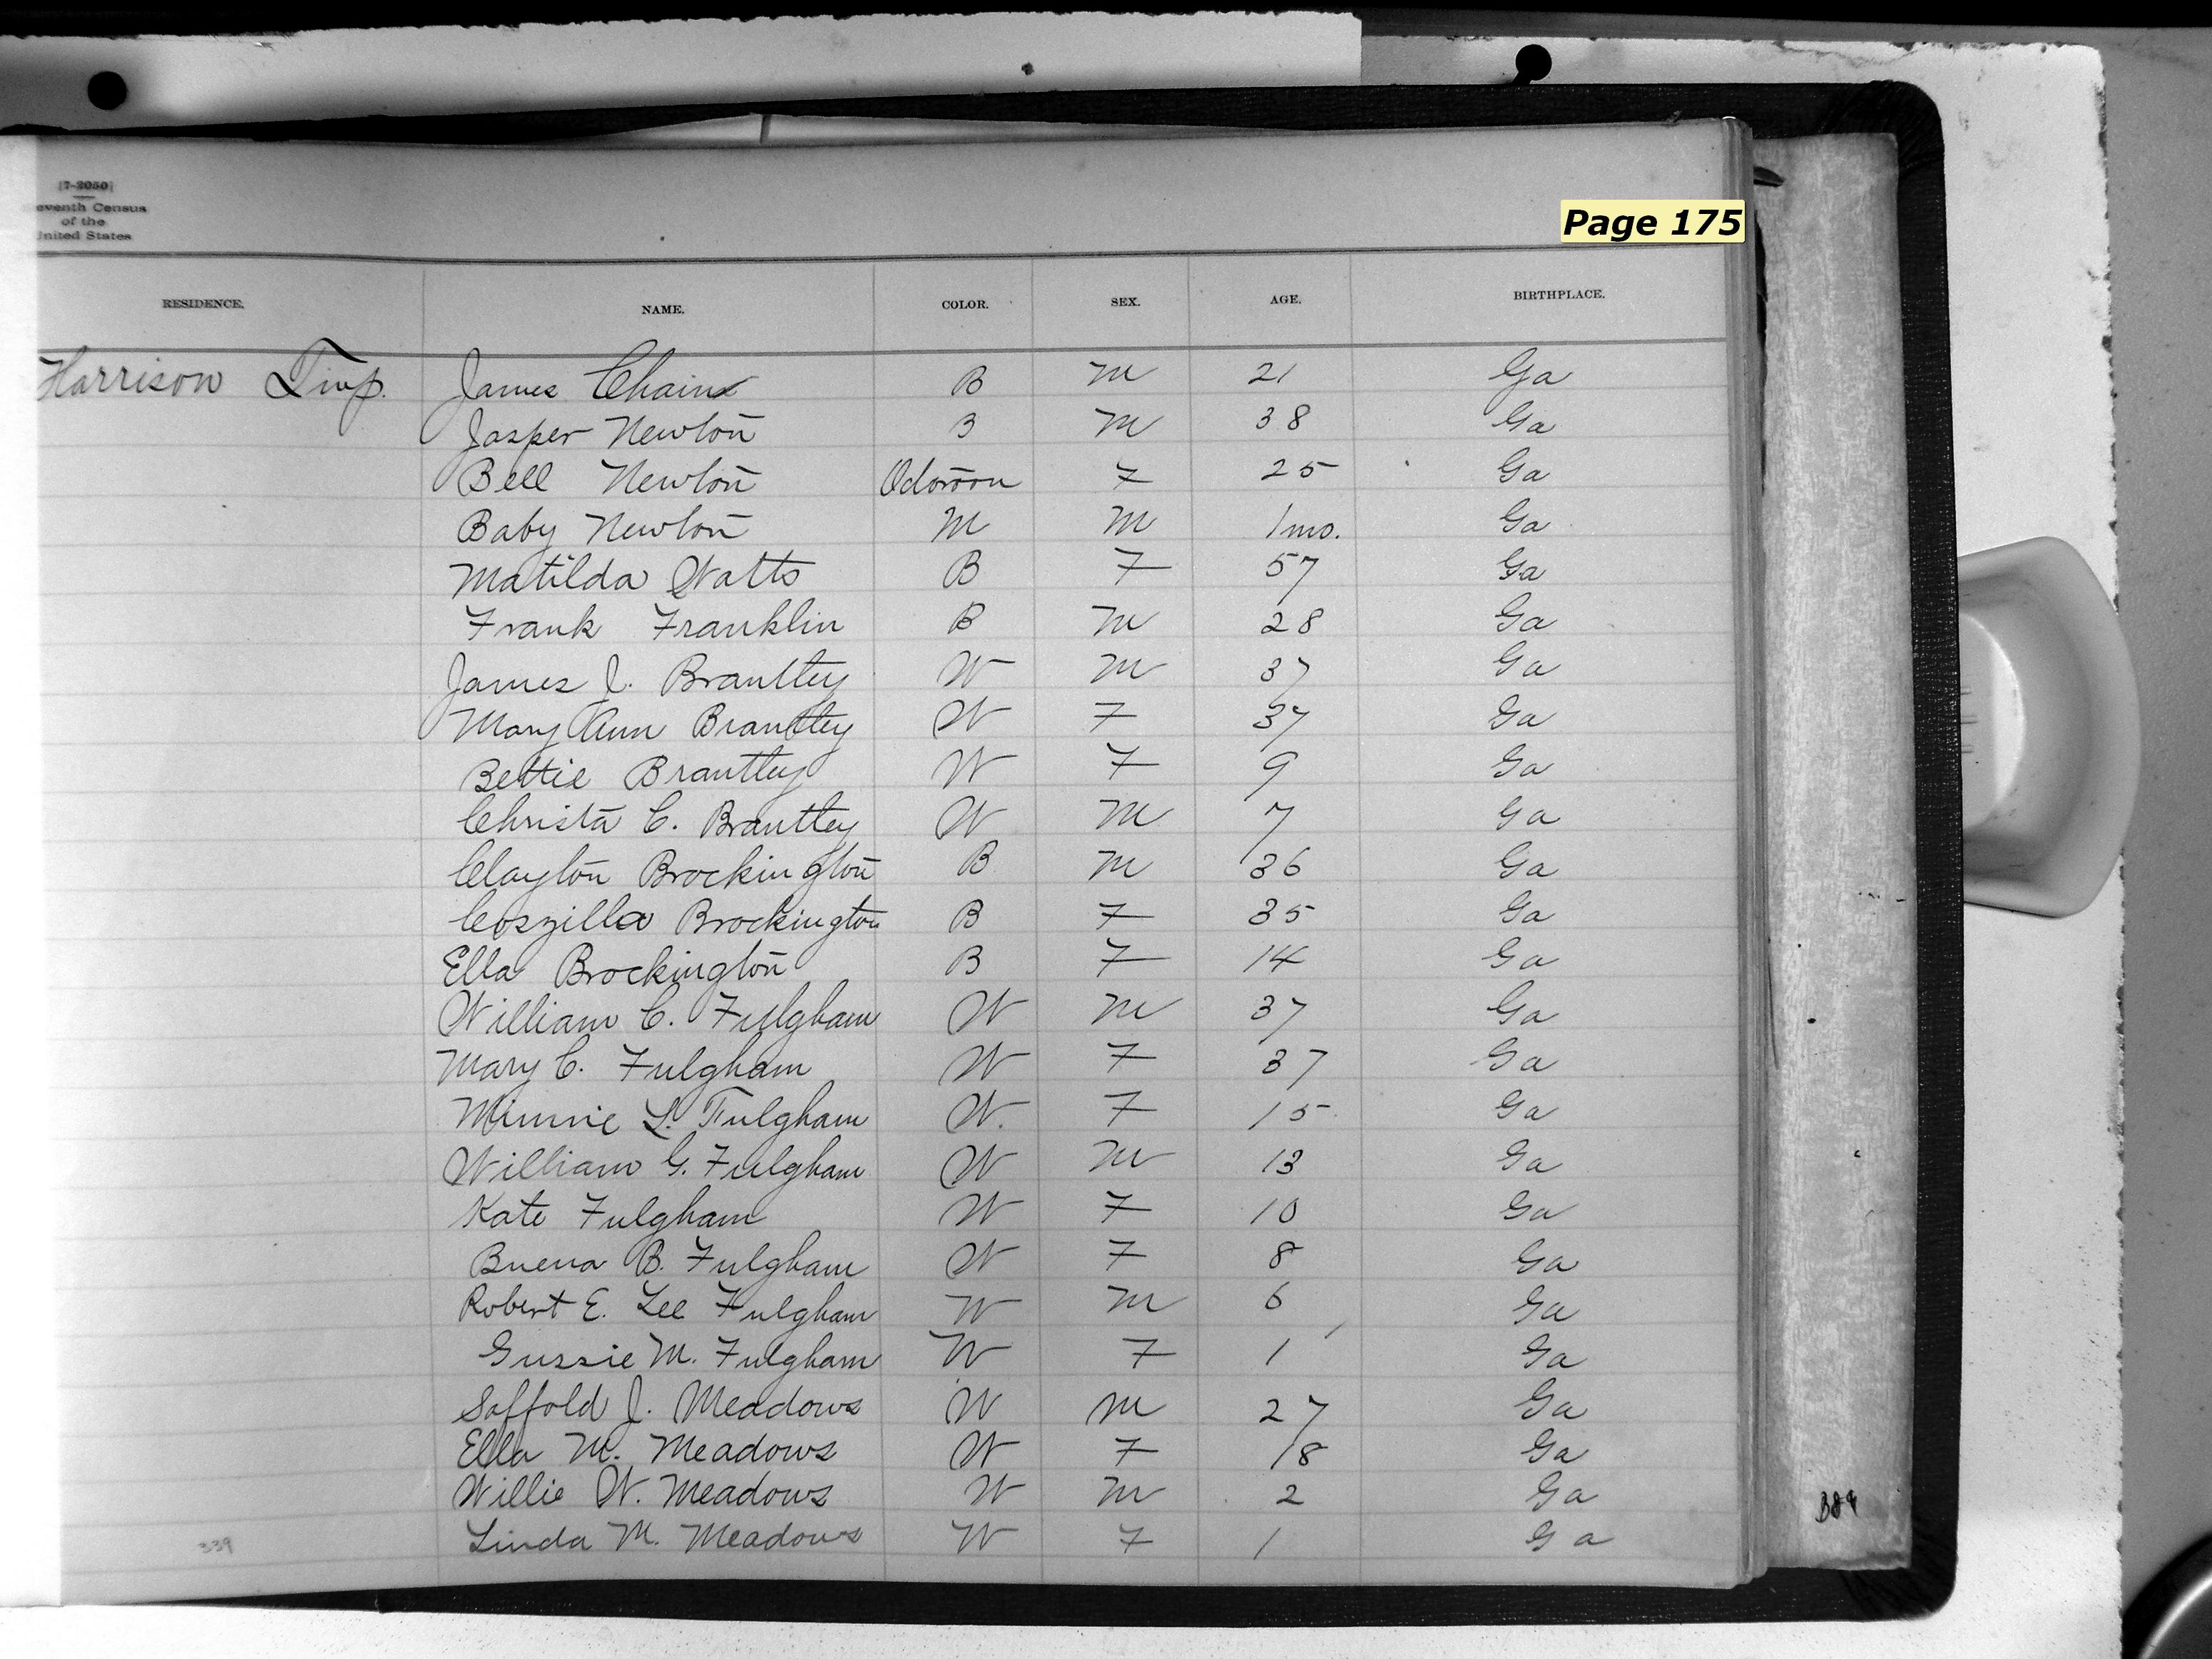 [7-2050]
eventh Census
of the
United States
Page 175
RESIDENCE. NAME. COLOR. SEX. AGE. BIRTHPLACE.
Harrison Twp. James Chains B M 21 Ga
Jasper Newton B M 38 Ga
Bell Newton F 25 Ga
Baby Newton M M 1mo. Ga
Matilda Watts B F 57 Ga
Frank Franklin B M 28 Ga
James J. Brantley W M 37 Ga
Mary Ann Brantley W F 37 Ga
Bettie Brantley W F 9 Ga
Christa C. Brantley W M 7 Ga
Clayton Brockington B M 36 Ga
Coszilla Brockington B F 35 Ga
Ella Brockington B F 14 Ga
William C. Fulgham W M 37 Ga
Mary C. Fulgham W F 37 Ga
Minnie L. Fulgham W. F 15 Ga
William G. Fulgham W M 13 Ga
Kate Fulgham W F 10 Ga
Buena B. Fulgham W F 8 Ga
Robert E. Lee Fulgham W M 6 Ga
Gussie M. Fulgham W F 1 Ga
Saffold J. Meadows W M 27 Ga
Ella M. Meadows W F 18 Ga
Willie W. Meadows W M 2 Ga
Linda M. Meadows W F 1 Ga
339